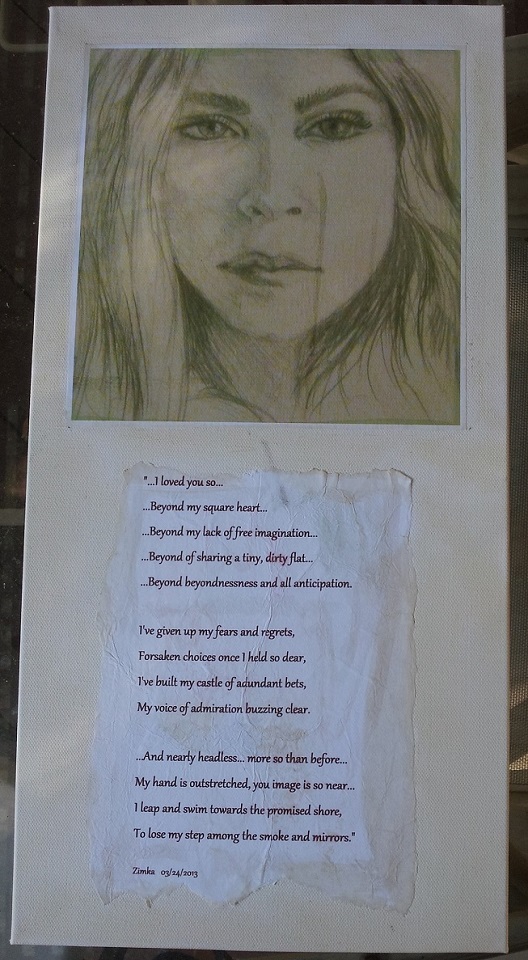 "...I loved you so...
...Beyond my square heart...
...Beyond my lack of free imagination...
...Beyond of sharing a tiny, dirty flat...
...Beyond beyondnessness and all anticipation.
I've given up my fears and regrets,
Forsaken choices once I held so dear,
I've built my castle of adundant bets,
My voice of admiration buzzing clear.
...And nearly headless... more so than before...
My hand is outstretched, you image is so near...
I leap and swim towards the promised shore,
To lose my step among the smoke and mirrors."
Zimka 03/24/2013